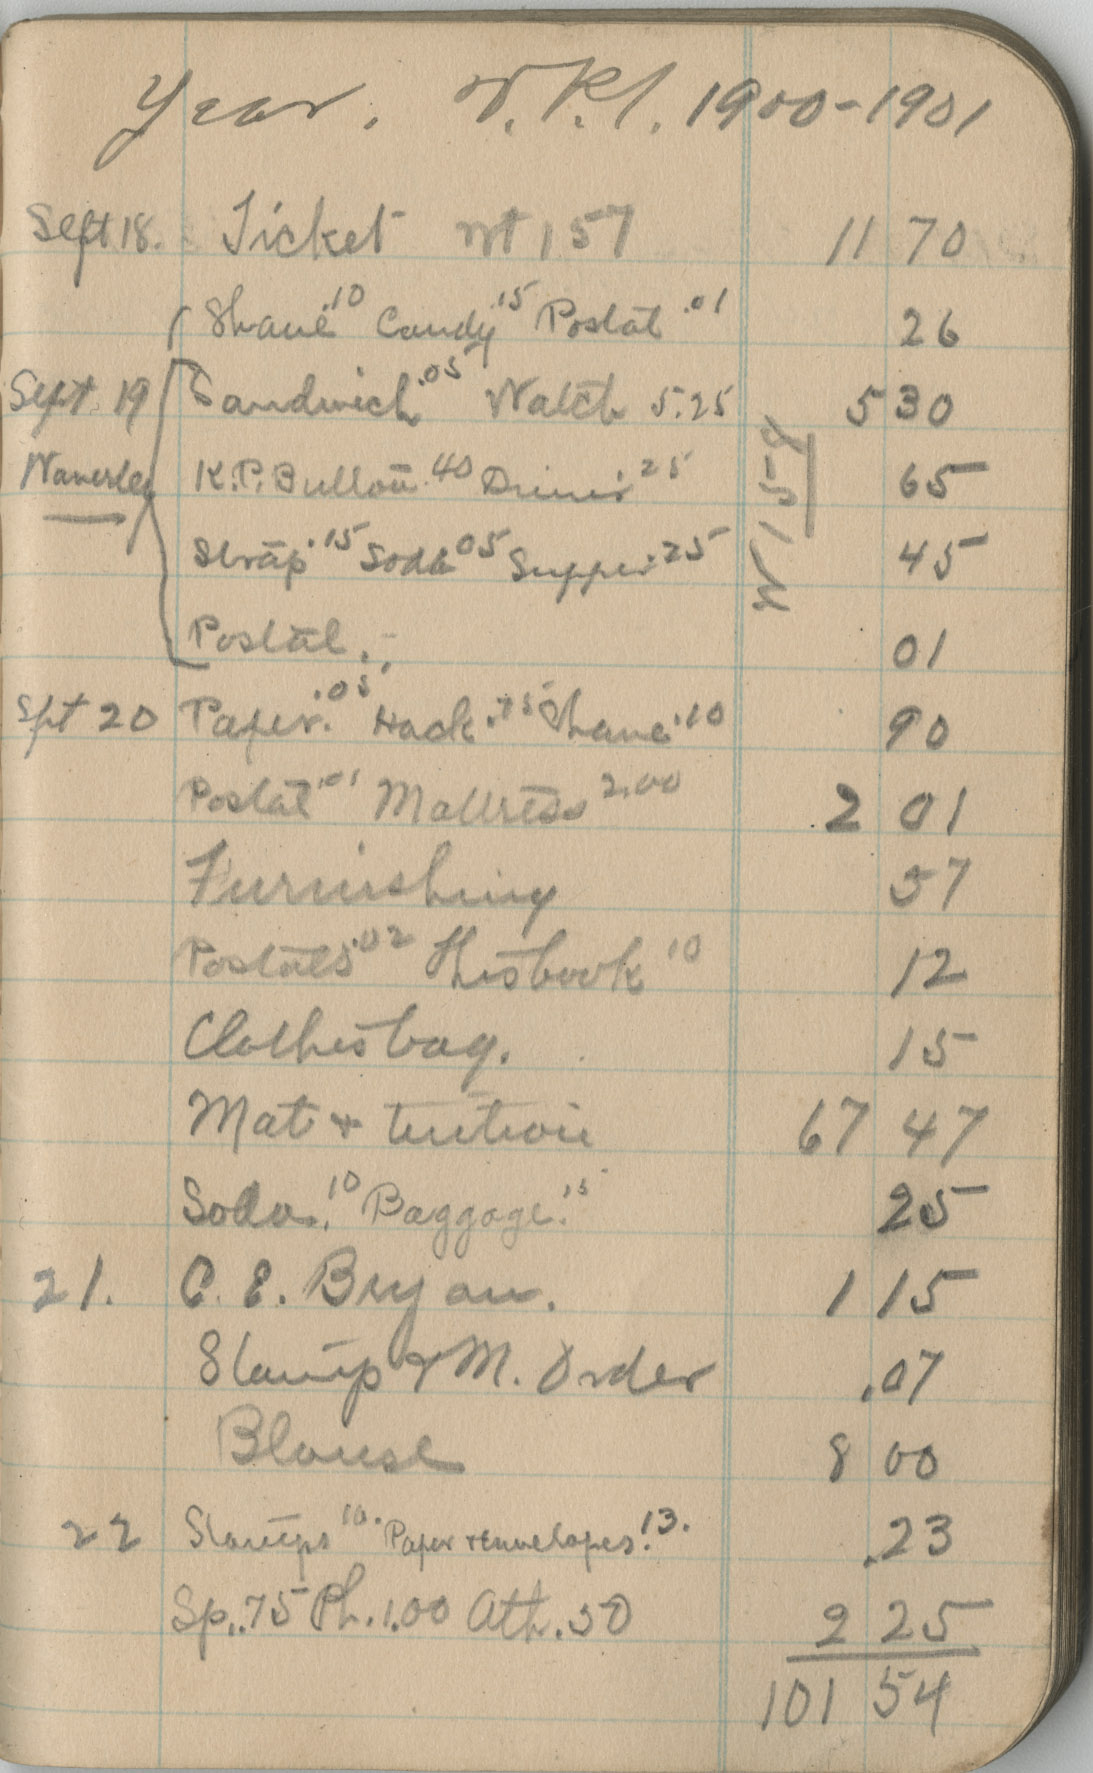 Year. V.P.I. 1900-1901
Sept 18. Ticket wt 157 11 70
Shave .10 Candy .15 Postal .01 26
Sept 19 Sandwich .05 Watch 5.25 5 30
Waverley K.P. Button .40 Dinner 25 65
Strap .15 Soda 05 Supper .25 45
Postal. 01
Spt 20 Paper. .05 Hack .75 Shave .10 90
Postal .01 Mattress 2.00 2 01
Furnishing 57
Postals .02 This book 10 12
Clothes bag. 15
Mat + tuition 67 47
Soda. 10 Baggage. 15 25
21. C. E. Bryan. 1 15
Stamp & M. Order .07
Blouse 8 00
22 Stamps 10. Paper + envelopes. 13. .23
Sp. .75 Ph. 1.00 Ath. .50 2 25
101 54